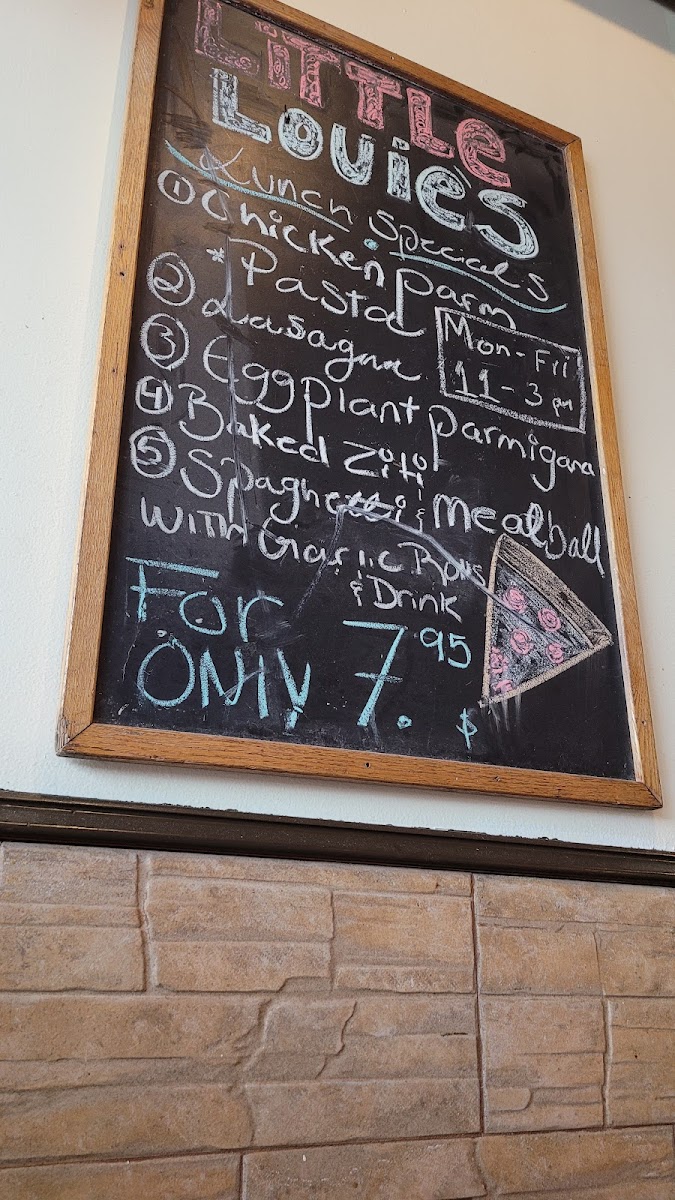 LiTTLe
Louie's
Lunch Specials
① Chicken Parm
*Pasta
② Lasagna
Mon-Fri
11-3 pm
③ Eggplant Parmigana
④ Baked Ziti
⑤ Spaghetti & Meatball
WITH Garlic Rolls
& Drink
For
ONly 7.95
$